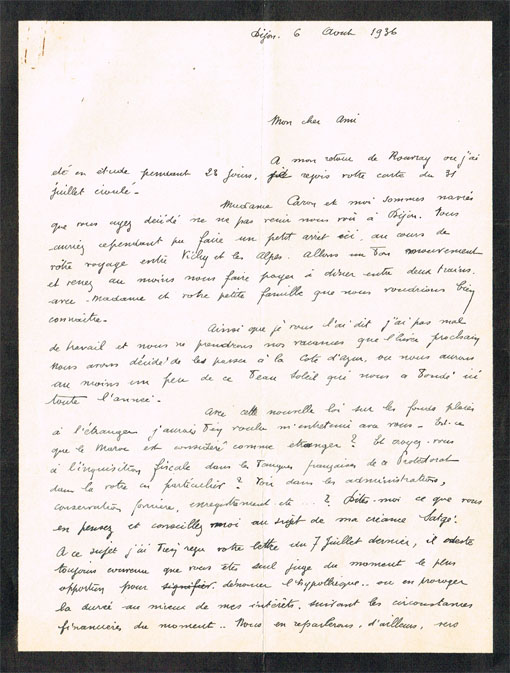 Dijon. 6 Aout 1936
Mon cher Ami
A mon retour de Rouvray ou j'ai
été en etude pendant 23 jours, je reçois votre carte du 31
juillet écoulé -
Madame Caron et moi sommes navrés
que vous ayez décidé ne pas venir nous voir à Dijon. Vous
auriez cependant pu faire un petit arret ici, au cours de
votre voyage entre Vichy et les Alpes. Allons un bon mouvement
et venez au moins nous faire payer à diner entre deux trains.
avec Madame et votre petite famille que nous voudrions bien
connaitre.
Ainsi que je vous l'ai dit j'ai pas mal
de travail et nous ne prendrons nos vacances que l'hiver prochain
Nous avons décidé de les passer à la Cote d'azur, ou nous aurons
au moins un peu de ce beau Soleil qui nous a boudé ici
toute l'année.
Avec cette nouvelle loi sur les fonds placés
à l'étranger j'aurais bien voulu m'entretenir avec vous - Est-ce
que le Maroc est considéré comme etranger ? Et croyez-vous
à l'inquisition fiscale dans les banques françaises de ce Protectorat
dans la votre en particulier ? Voir dans les administrations,
conservation foncière, enregistrement etc ... ? Dites-moi ce que vous
en pensez et conseillez moi au sujet de ma créance
A ce sujet j'ai bien reçu votre lettre du 7 Juillet dernier, il
toujours convenu que vous êtes seul juge du moment le plus
opportun pour signifier. dénoncer l'hypothèque .. ou en proroger
la durée au mieux de mes intérêts. suivant les circonstances
financières du moment .. Nous en reparlerons, d'ailleurs, vers